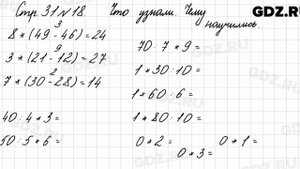 Стр. 31 №18. Что узнали. Чему научились
8*(49-46)=24
3
3*(21-12)=27
9
7*(30-28)=14
2
40:4*3=
50:5*6=
70:7*9=
1*30:10=
1*60:6=
1*80:10=
0*2=
0*1=
0*3=
GDZ.RU